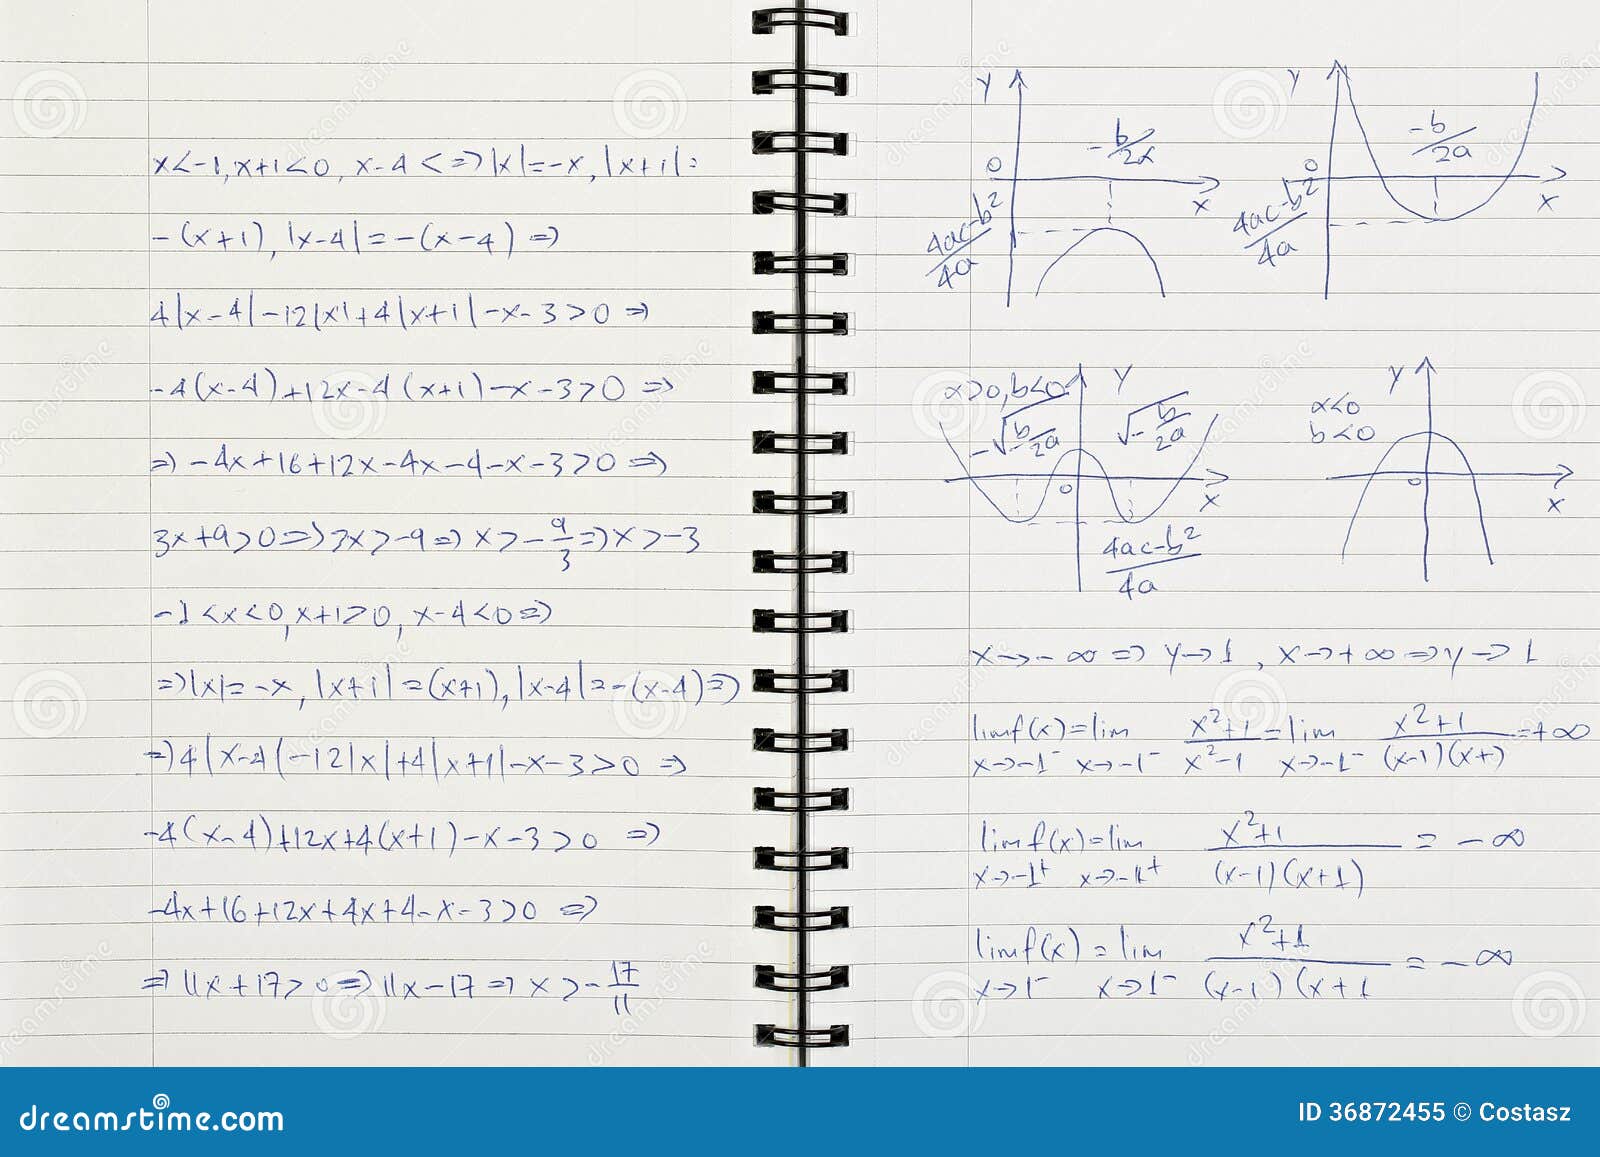 x<-1, x+1<0, x-4 < => |x|=-x, |x+1|=
-(x+1), |x-4|=-(x-4) =>
4|x-4|-12|x|+4|x+1|-x-3>0 =>
-4(x-4)+12x-4(x+1)-x-3>0 =>
=> -4x+16+12x-4x-4-x-3>0 =>
3x+9>0 => 3x>-9 => x>-9/3 => x>-3
-1<x<0, x+1>0, x-4<0 =>
=> |x|=-x, |x+1|=(x+1), |x-4|=-(x-4) =>
=> 4|x-4|-12|x|+4|x+1|-x-3>0 =>
-4(x-4)+12x+4(x+1)-x-3>0 =>
-4x+16+12x+4x+4-x-3>0 =>
=> 11x+17>0 => 11x-17 => x>-17/11
y
-b/2a
0
x
4ac-b²/4a
y
-b/2a
0
x
4ac-b²/4a
α>0, b<0
y
-√b/2a
√-b/2a
0
x
4ac-b²/4a
y
α<0
b<0
0
x
x→-∞ => y→1, x→+∞ => y→1
limf(x)=lim x²+1/x²-1=lim x²+1/(x-1)(x+)=+∞
x→-1⁻ x→-1⁻ x→-1⁻
limf(x)=lim x²+1/(x-1)(x+1) = -∞
x→-1⁺ x→-1⁺
limf(x) = lim x²+1/(x-1)(x+1 = -∞
x→1⁻ x→1⁻
dreamstime.com
ID 36872455 © Costasz